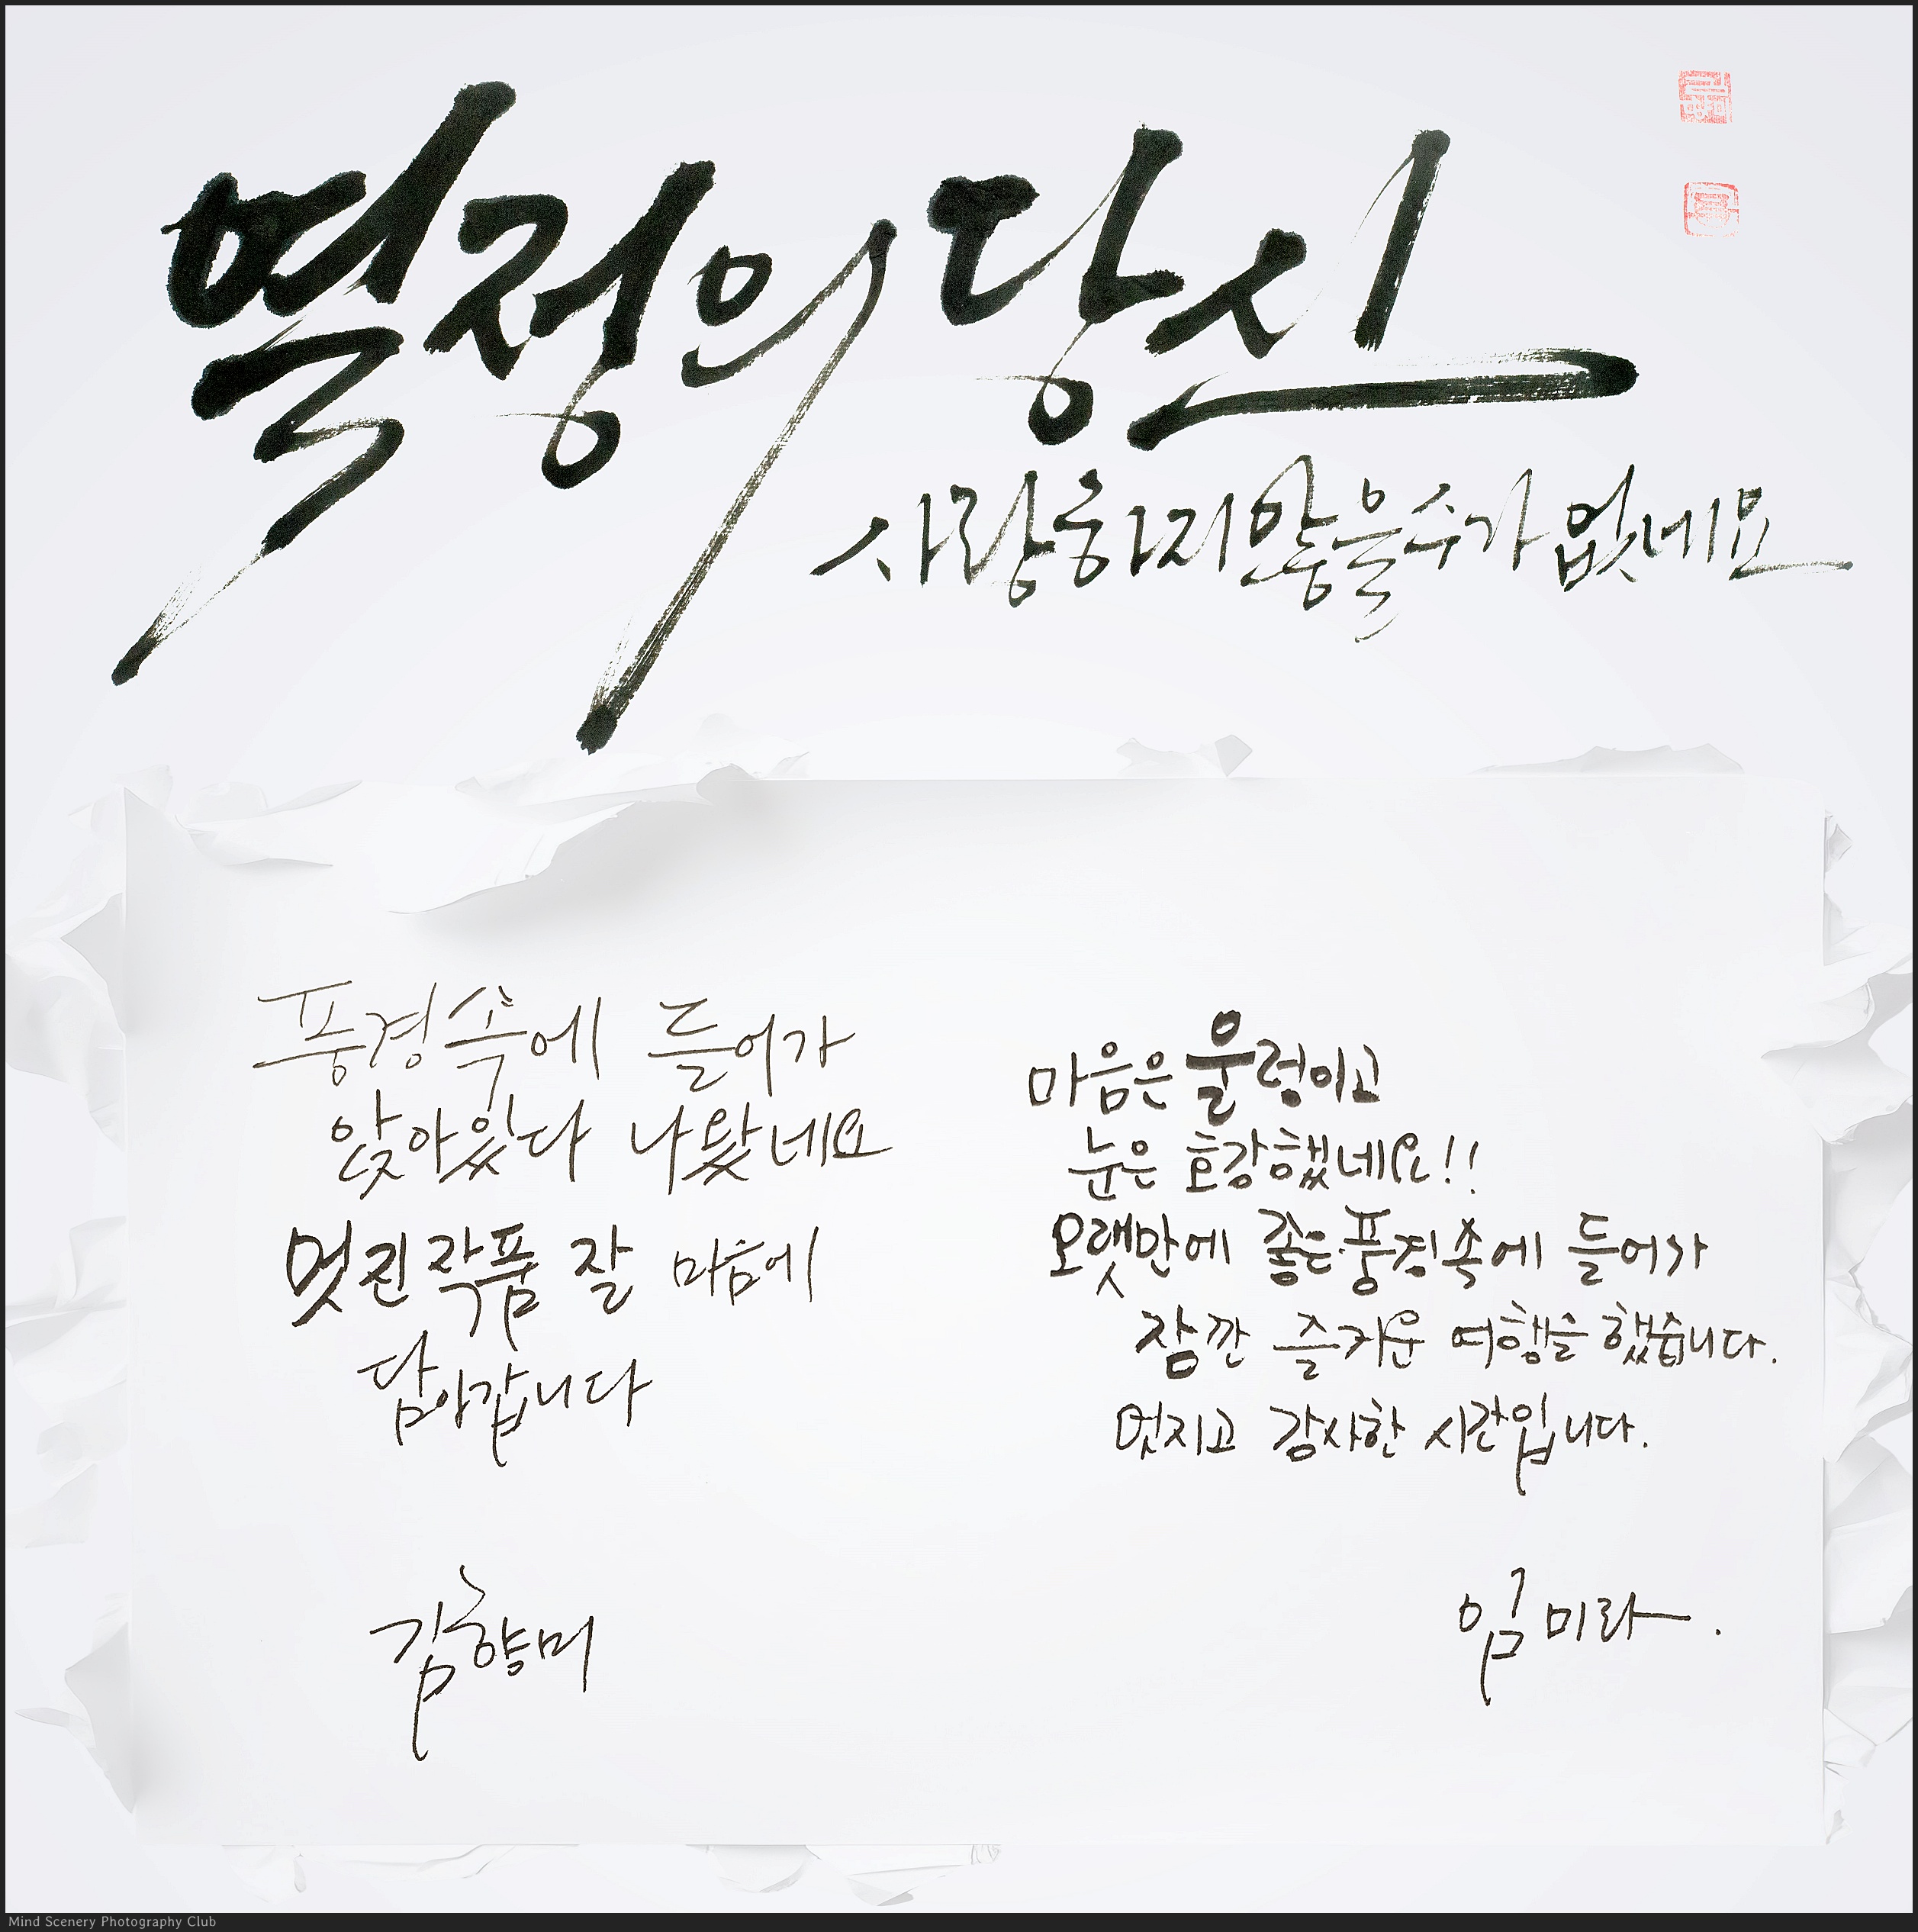 열정의 당신
사랑하지 않을 수가 없네요
풍경속에 들어가
앉아있다 나왔네요
멋진 작품 잘 마음에
담아갑니다
김향미
마음은 울렁이고
눈은 호강했네요!!
오랫만에 좋은 풍경속에 들어가
잠깐 즐거운 여행을 했습니다.
멋지고 감사한 시간입니다.
임미라.
Mind Scenery Photography Club